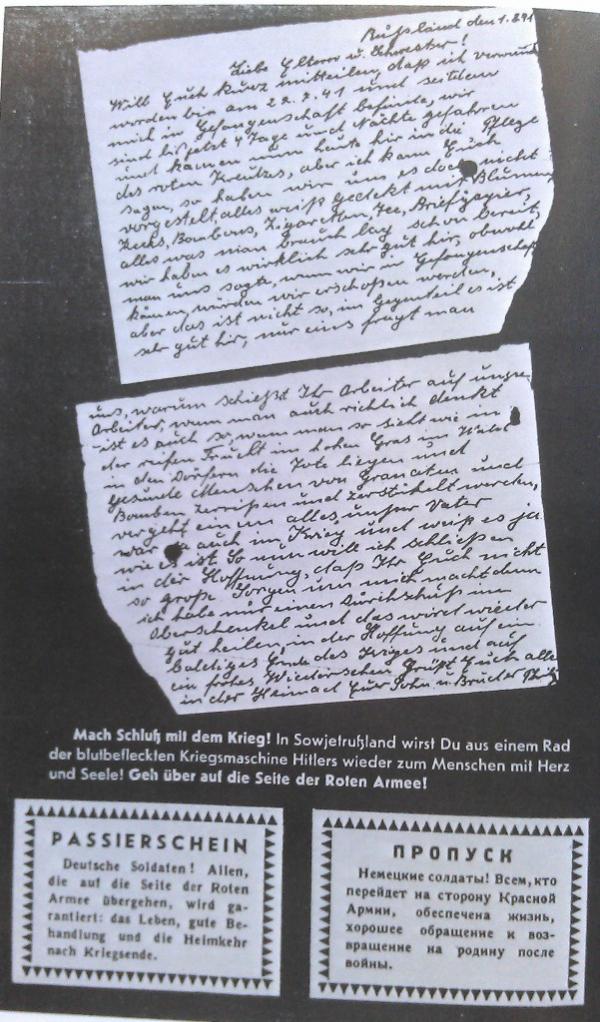 Rußland den 1.8.41
Liebe Eltern u. Schwester!
Will Euch kurz mitteilen, daß ich verwund
worden bin am 22.7.41 und seitdem
mich in Gefangenschaft befinde, wir
sind bis jetzt 4 Tage und Nächte gefahren
und kamen nun heute hir in die Pflege
des roten Kreutzes, aber ich kann Euch
sagen, so haben wir uns es doch nicht
vorgestelt, alles weiß gedekt mit Blumen
Keeks, Bombons, Zigaretten, Tee, Briefpapier,
alles was man brauch lag schon bereit,
wir haben es wirklich sehr gut hir, obwohl
man uns sagte, wenn wir in Gefangenschaf
kämen, würden wir erschoßen werden,
aber das ist nicht so, im Gegenteil es ist
sehr gut hir, nur eins fragt man
uns, warum schießt Ihr Arbeiter auf unsre
Arbeiter, wenn man auch richlich denkt
ist es auch so, wenn man so sieht wie in
der reifen Frucht im hohen Gras im Wald
in den Dörfern die Tote liegen und
gesunde Menschen von Granaten und
Bomben zerrißen und zerstükelt werden,
vergeht einem alles, unser Vater
war ja auch im Krieg und weiß es ja
wie es ist. So nun will ich schließen
in der Hoffnung, daß Ihr Euch nicht
so große Sorgen um mich macht denn
ich habe nur einen Durchschuß im
Oberschenkel und das wird wieder
gut heilen, in der Hoffnung auf ein
baldiges Ende des Kriges und auf
ein frohes Wiedersehen Grüßt Euch alle
in der Heimad Euer Sohn u. Bruder
Mach Schluß mit dem Krieg! In Sowjetrußland wirst Du aus einem Rad
der blutbefleckten Kriegsmaschine Hitlers wieder zum Menschen mit Herz
und Seele! Geh über auf die Seite der Roten Armee!
PASSIERSCHEIN
Deutsche Soldaten! Allen,
die auf die Seite der Roten
Armee übergehen, wird ga-
rantiert: das Leben, gute Be-
handlung und die Heimkehr
nach Kriegsende.
ПРОПУСК
Немецкие солдаты! Всем, кто
перейдет на сторону Красной
Армии, обеспечена жизнь,
хорошее обращение и воз-
вращение на родину после
войны.